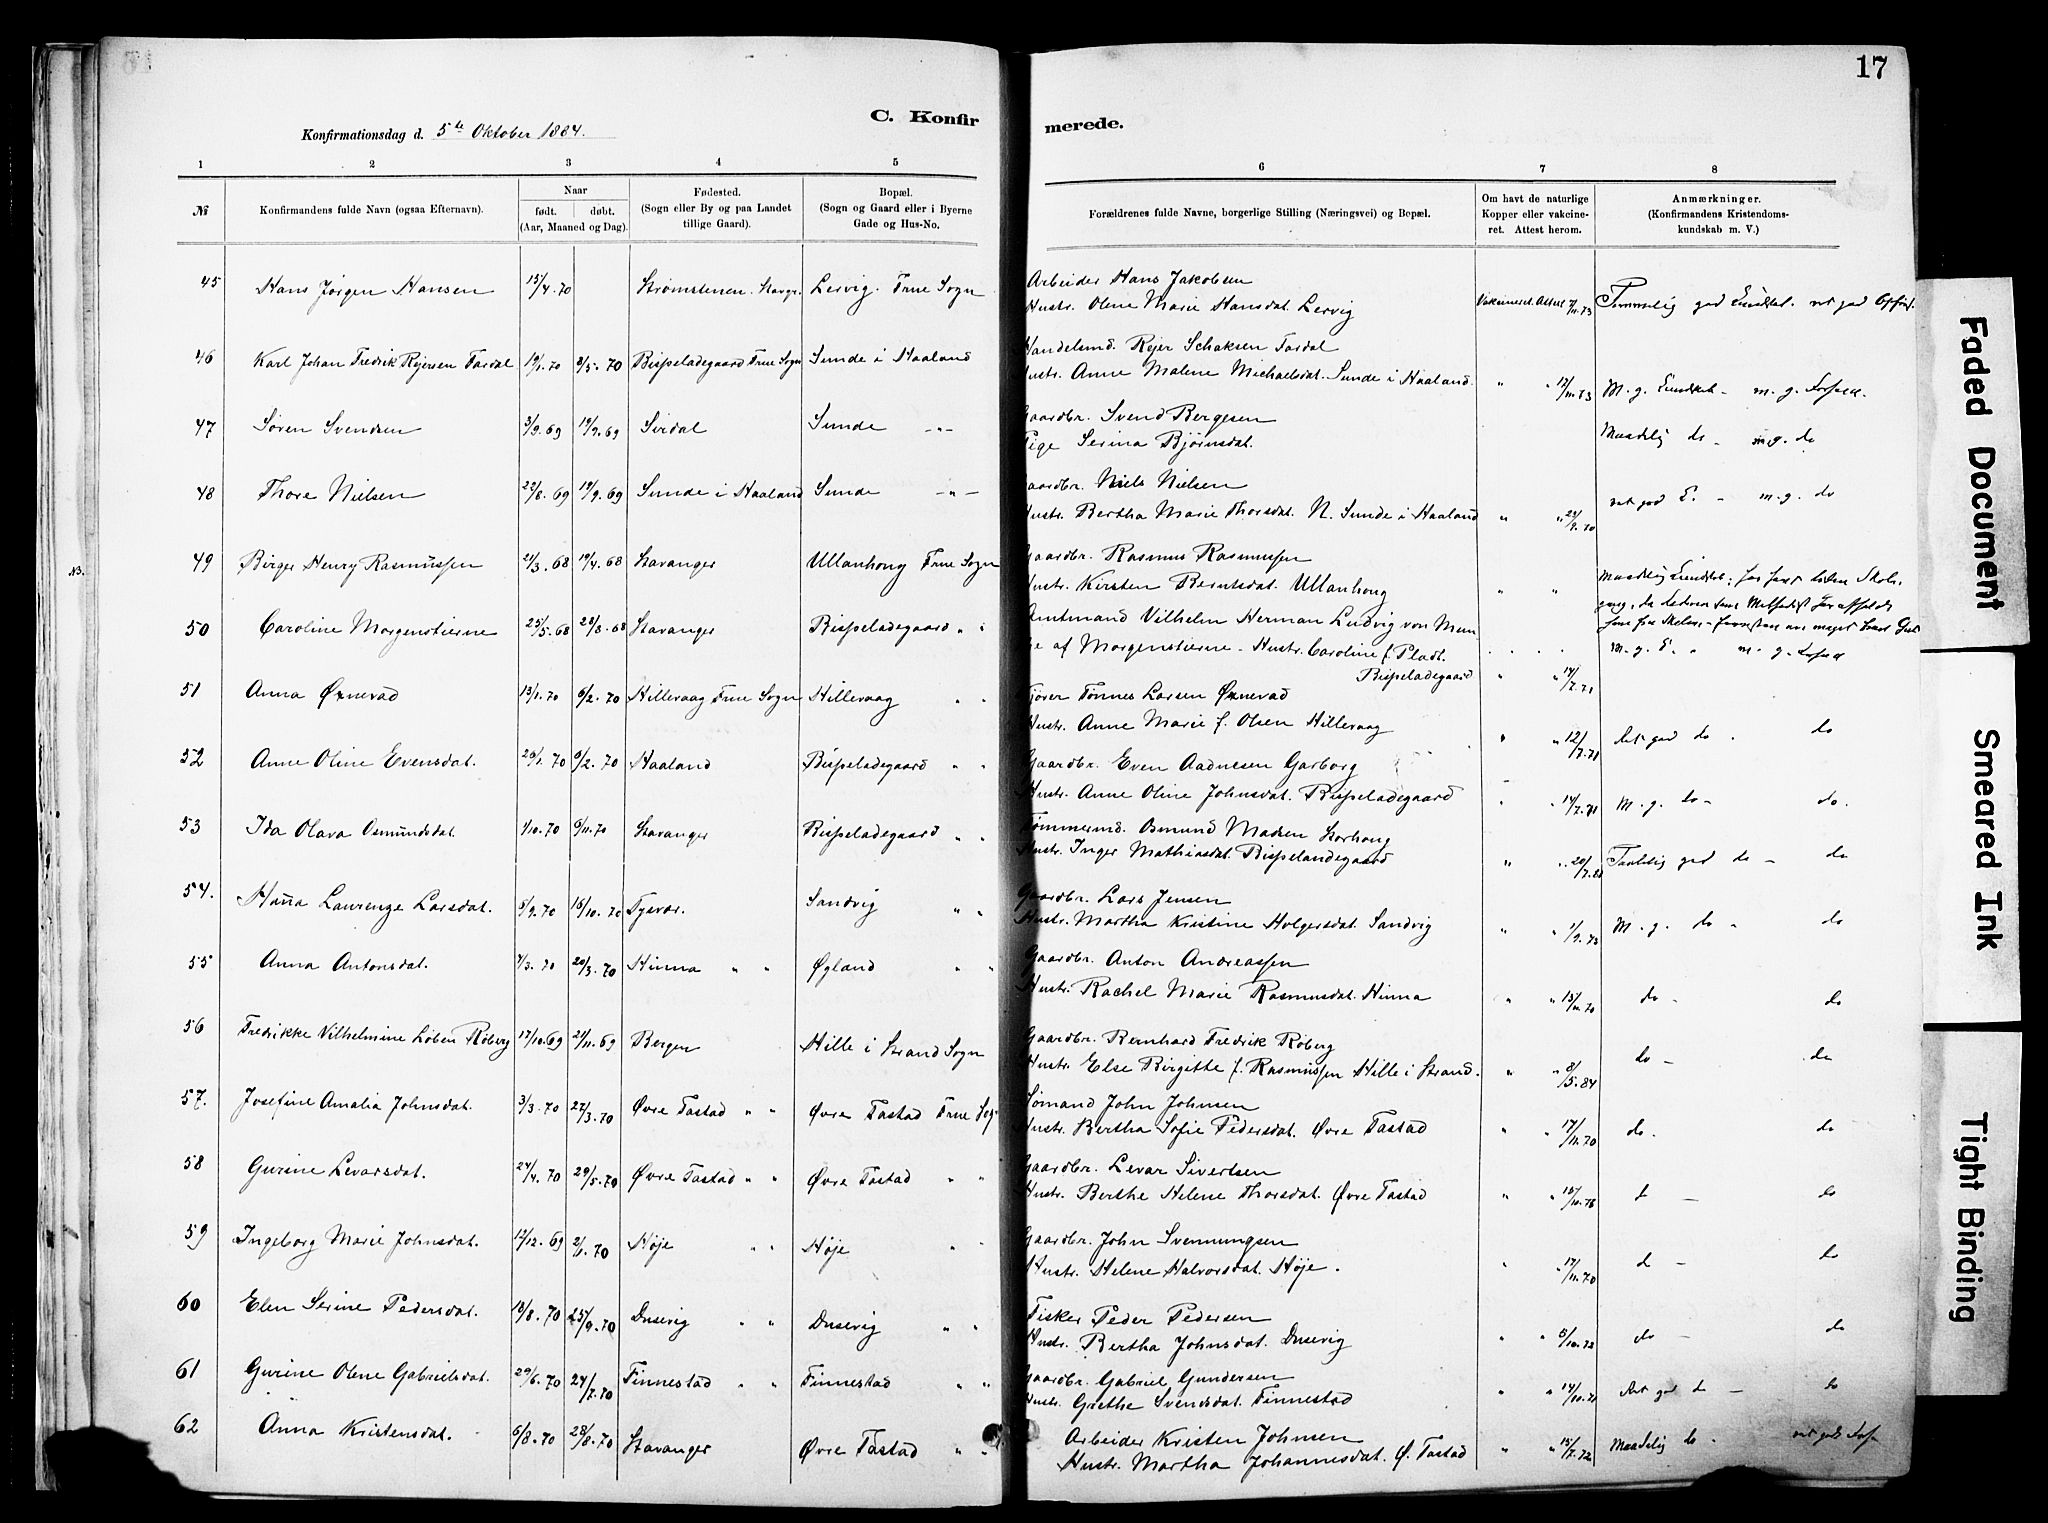 17
C. Konfirmerede.
Konfirmationsdag d. 5te Oktober 1884.
1 2 3 4 5 6 7 8
№
Konfirmandens fulde Navn (ogsaa Efternavn).
Naar
født. døbt.
(Aar, Maaned og Dag).
Fødested.
(Sogn eller By og paa Landet
tillige Gaard).
Bopæl.
(Sogn og Gaard eller i Byerne
Gade og Hus-No.
Forældrenes fulde Navne, borgerlige Stilling (Næringsvei) og Bopæl.
Om havt de naturlige
Kopper eller vakcine-
ret. Attest herom.
Anmærkninger.
(Konfirmandens Kristendoms-
kundskab m. V.)
45 Hans Jørgen Hansen 15/4.70 Strømstenen. Stavgr. Lervig. Frue Sogn
Arbeider Hans Jakobsen
Hustr. Olene Marie Hansdat. Lervig Vakcineret. Attest 7/11.73 Temmelig god Kundskb. god
46 Karl Johan Fredrik Rejersen Tardal 19/1.70 8/5.70 Bispeladegaard Frue Sogn Sunde i Haaland
Handelsmd. Rejer Schaksen Tardal
Hustr. Anne Malene Michaelsdat. Sunde i Haaland. " " 12/11.73 M. g. Kundskb. - m. g. Forhold.
47 Søren Svendsen 3/9.69 19/9.69 Sirdal Sunde -"-
Gaardbr. Svend Bergesen
Pige Serina Bjørnsdat. Maadelig do - m. g. do
48 Thore Nielsen 22/8.69 19/9.69 Sunde i Haaland Sunde -"-
Gaardbr. Niels Nielsen
Hustr. Bertha Marie Thorsdat. N. Sunde i Haaland " " 24/9.70 god K. - m. g. do
N3.
49 Birger Henry Rasmussen 21/3.68 19/4.68 Stavanger Ullanhoug Frue Sogn
Gaardbr. Rasmus Rasmussen
Hustr. Kirsten Berntsdat. Ullanhoug " " Maadelig Kundskb; har havt liden Skole-
gang, da Faderen som Methodist
50 Caroline Morgenstierne 25/5.68 28/8.68 Stavanger Bispeladegaard " "
Amtmand Vilhelm Herman Ludvig von Mun
Hustr. Caroline f. Pladt.
Bispeladegaard " " 14/7.71 M. g. K. " m. g. Forhold
51 Anna Øxnevad 13/1.70 6/2.70 Hillevaag Frue Sogn Hillevaag " "
Kjører Tønnes Larsen Øxnevad
Hustr. Anne Marie f. Olsen Hillevaag " " 12/7.71 Ret god do - do
52 Anne Oline Evensdat. 20/1.70 6/2.70 Haaland Bispeladegaard " "
Gaardbr. Even Aadnesen Garborg
Hustr. Anne Oline Johnsdat. Bispeladegaard " " 14/7.71 M. g. do - do.
53 Ida Olava Osmundsdat. 1/10.70 6/11.70 Stavanger Bispeladegaard " "
Tømmermd. Osmund Madsen Storhoug
Hustr. Inger Mathiasdat. Bispelandegaard " " 20/7. Taalelig god do - do
54. Hanna Laurenze Larsdat. 5/9.70 16/10.70 Tysvær. Sandvig " "
Gaardbr. Lars Jensen
Hustr. Martha Kristine Holgersdat. Sandvig " " 1/9.73 M. g. do - do
55 Anna Antonsdat. 7/3.70 20/3.70 Hinna " " Øgland " "
Gaardbr. Anton Andreassen
Hustr. Rachel Marie Rasmusdat. Hinna " " 13/11.70 do - do
56 Fredrikke Vilhelmine Løben Røberg 17/10.69 21/11.69 Bergen Hille i Strand Sogn
Gaardbr. Bernhard Fredrik Røberg
Hustr. Else Birgitte f. Rasmussen Hille i Strand. " " 8/5.84 do - do
57. Josefine Amalia Johnsdat. 3/3.70 27/3.70 Øvre Tastad " " Øvre Tastad Frue Sog
Sømand John Johnsen
Hustr. Bertha Sofie Pedersdat. Øvre Tastad " " 17/11.70 do. do
58 Gurine Levarsdat. 24/4.70 29/5.70 Øvre Tastad " " Øvre Tastad " "
Gaardbr. Levar Sivertsen
Hustr. Berthe Helene Thorsdat. Øvre Tastad " " 15/10.76 d - do
59 Ingeborg Marie Johnsdat. 12/12.69 2/1.70 Høje " " Høje " "
Gaardbr. John Svennungsen
Hustr. Helene Halvorsdat. Høje. " " 17/11.70 d - do
60 Elen Serine Pedersdat. 18/8.70 25/9.70 Dusevig " " Dusevig " "
Fisker Peder Pedersen
Hustr. Bertha Johnsdat. Dusevig " " 5/10.72 do - do
61 Gurine Olene Gabrielsdat. 29/6.70 24/7.70 Finnestad " " Finnestad " "
Gaardbr. Gabriel Gundersen
Hustr. Grethe Svendsdat. Finnestad " " 14/10.71 Ret god do - do
62 Anna Kristensdat. 6/8.70 28/8.70 Stavanger Øvre Tastad " "
Arbeider Kristen Johnsen
Hustr. Martha Johannesdat. Ø. Tastad " " 15/7.72 Maadelig do -
Faded Document
Smeared Ink
Tight Binding